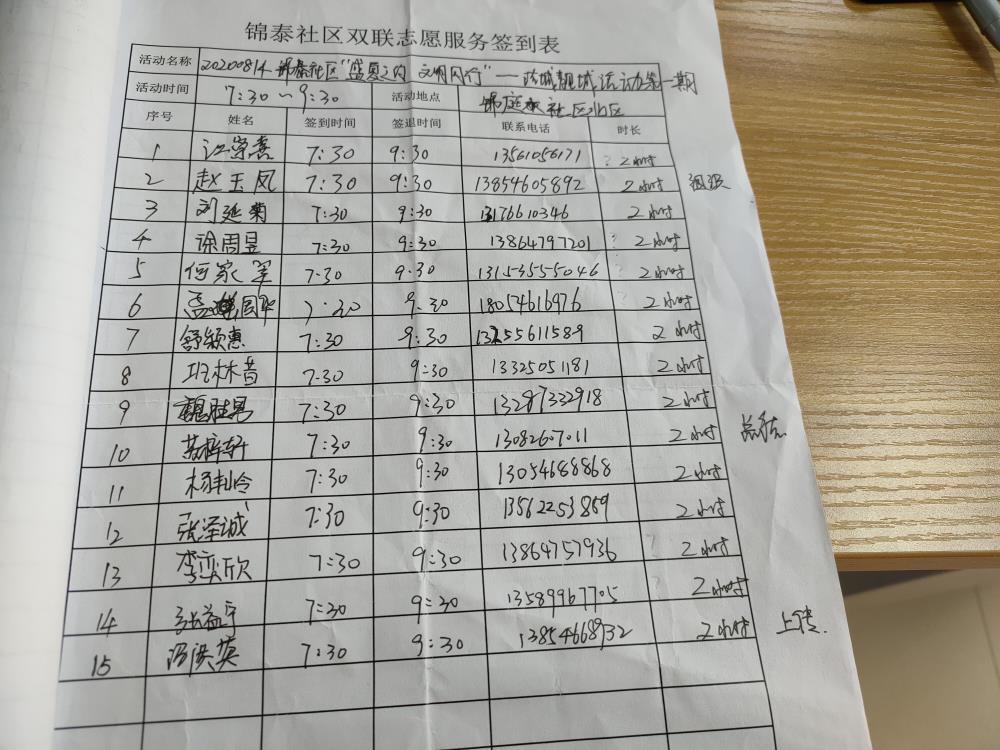 锦泰社区双联志愿服务签到表
活动名称 20200814 锦泰社区“盛夏之约 文明同行”—活动第一期
活动时间 7:30~9:30 活动地点 锦庭社区北区
序号 姓名 签到时间 签退时间 联系电话 时长
1 江崇喜 7:30 9:30 13561056171 2小时
2 赵玉凤 7:30 9:30 13854605892 2小时 组织
3 刘延菊 7:30 9:30 13176610346 2小时
4 徐周昱 7:30 9:30 13864797201 2小时
5 何家翠 7:30 9:30 13153555046 2小时
6 7:30 9:30 18054616976 2小时
7 舒颖惠 7:30 9:30 13255611589 2小时
8 班林昔 7:30 9:30 13325051181 2小时
9 魏胜男 7:30 9:30 13287332918 2小时
10 苏梓轩 7:30 9:30 13082607011 2小时 总结
11 杨丰岭 7:30 9:30 13054688868 2小时
12 张泽诚 7:30 9:30 13562253859 2小时
13 李奕欣 7:30 9:30 13864757936 2小时
14 张益宁 7:30 9:30 13589967705 2小时
15 冯洪英 7:30 9:30 13854668932 2小时 上传.